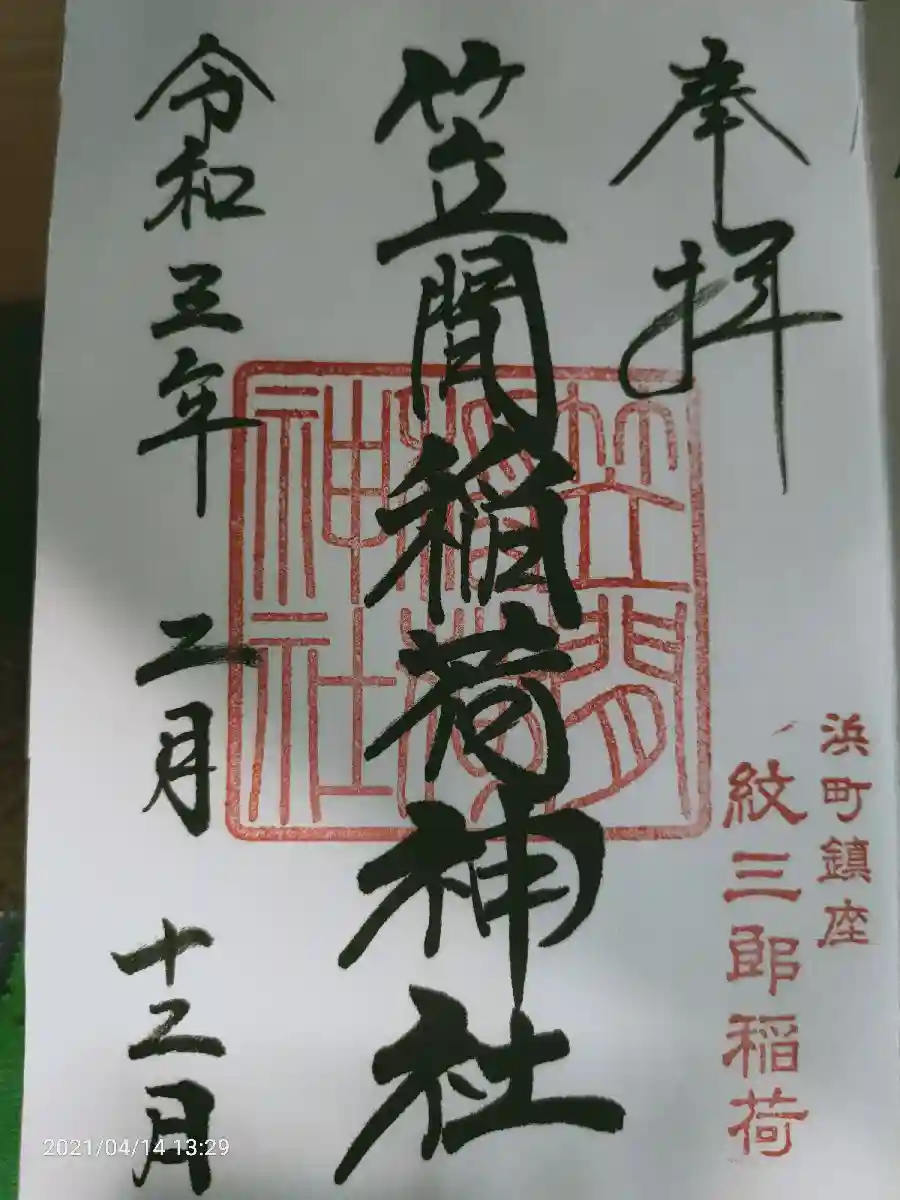 奉拝
浜町鎮座
紋三郎稲荷
笠間稲荷神社
笠間
稲荷
神社
令和三年 二月 十二月
2021/04/14 13:29